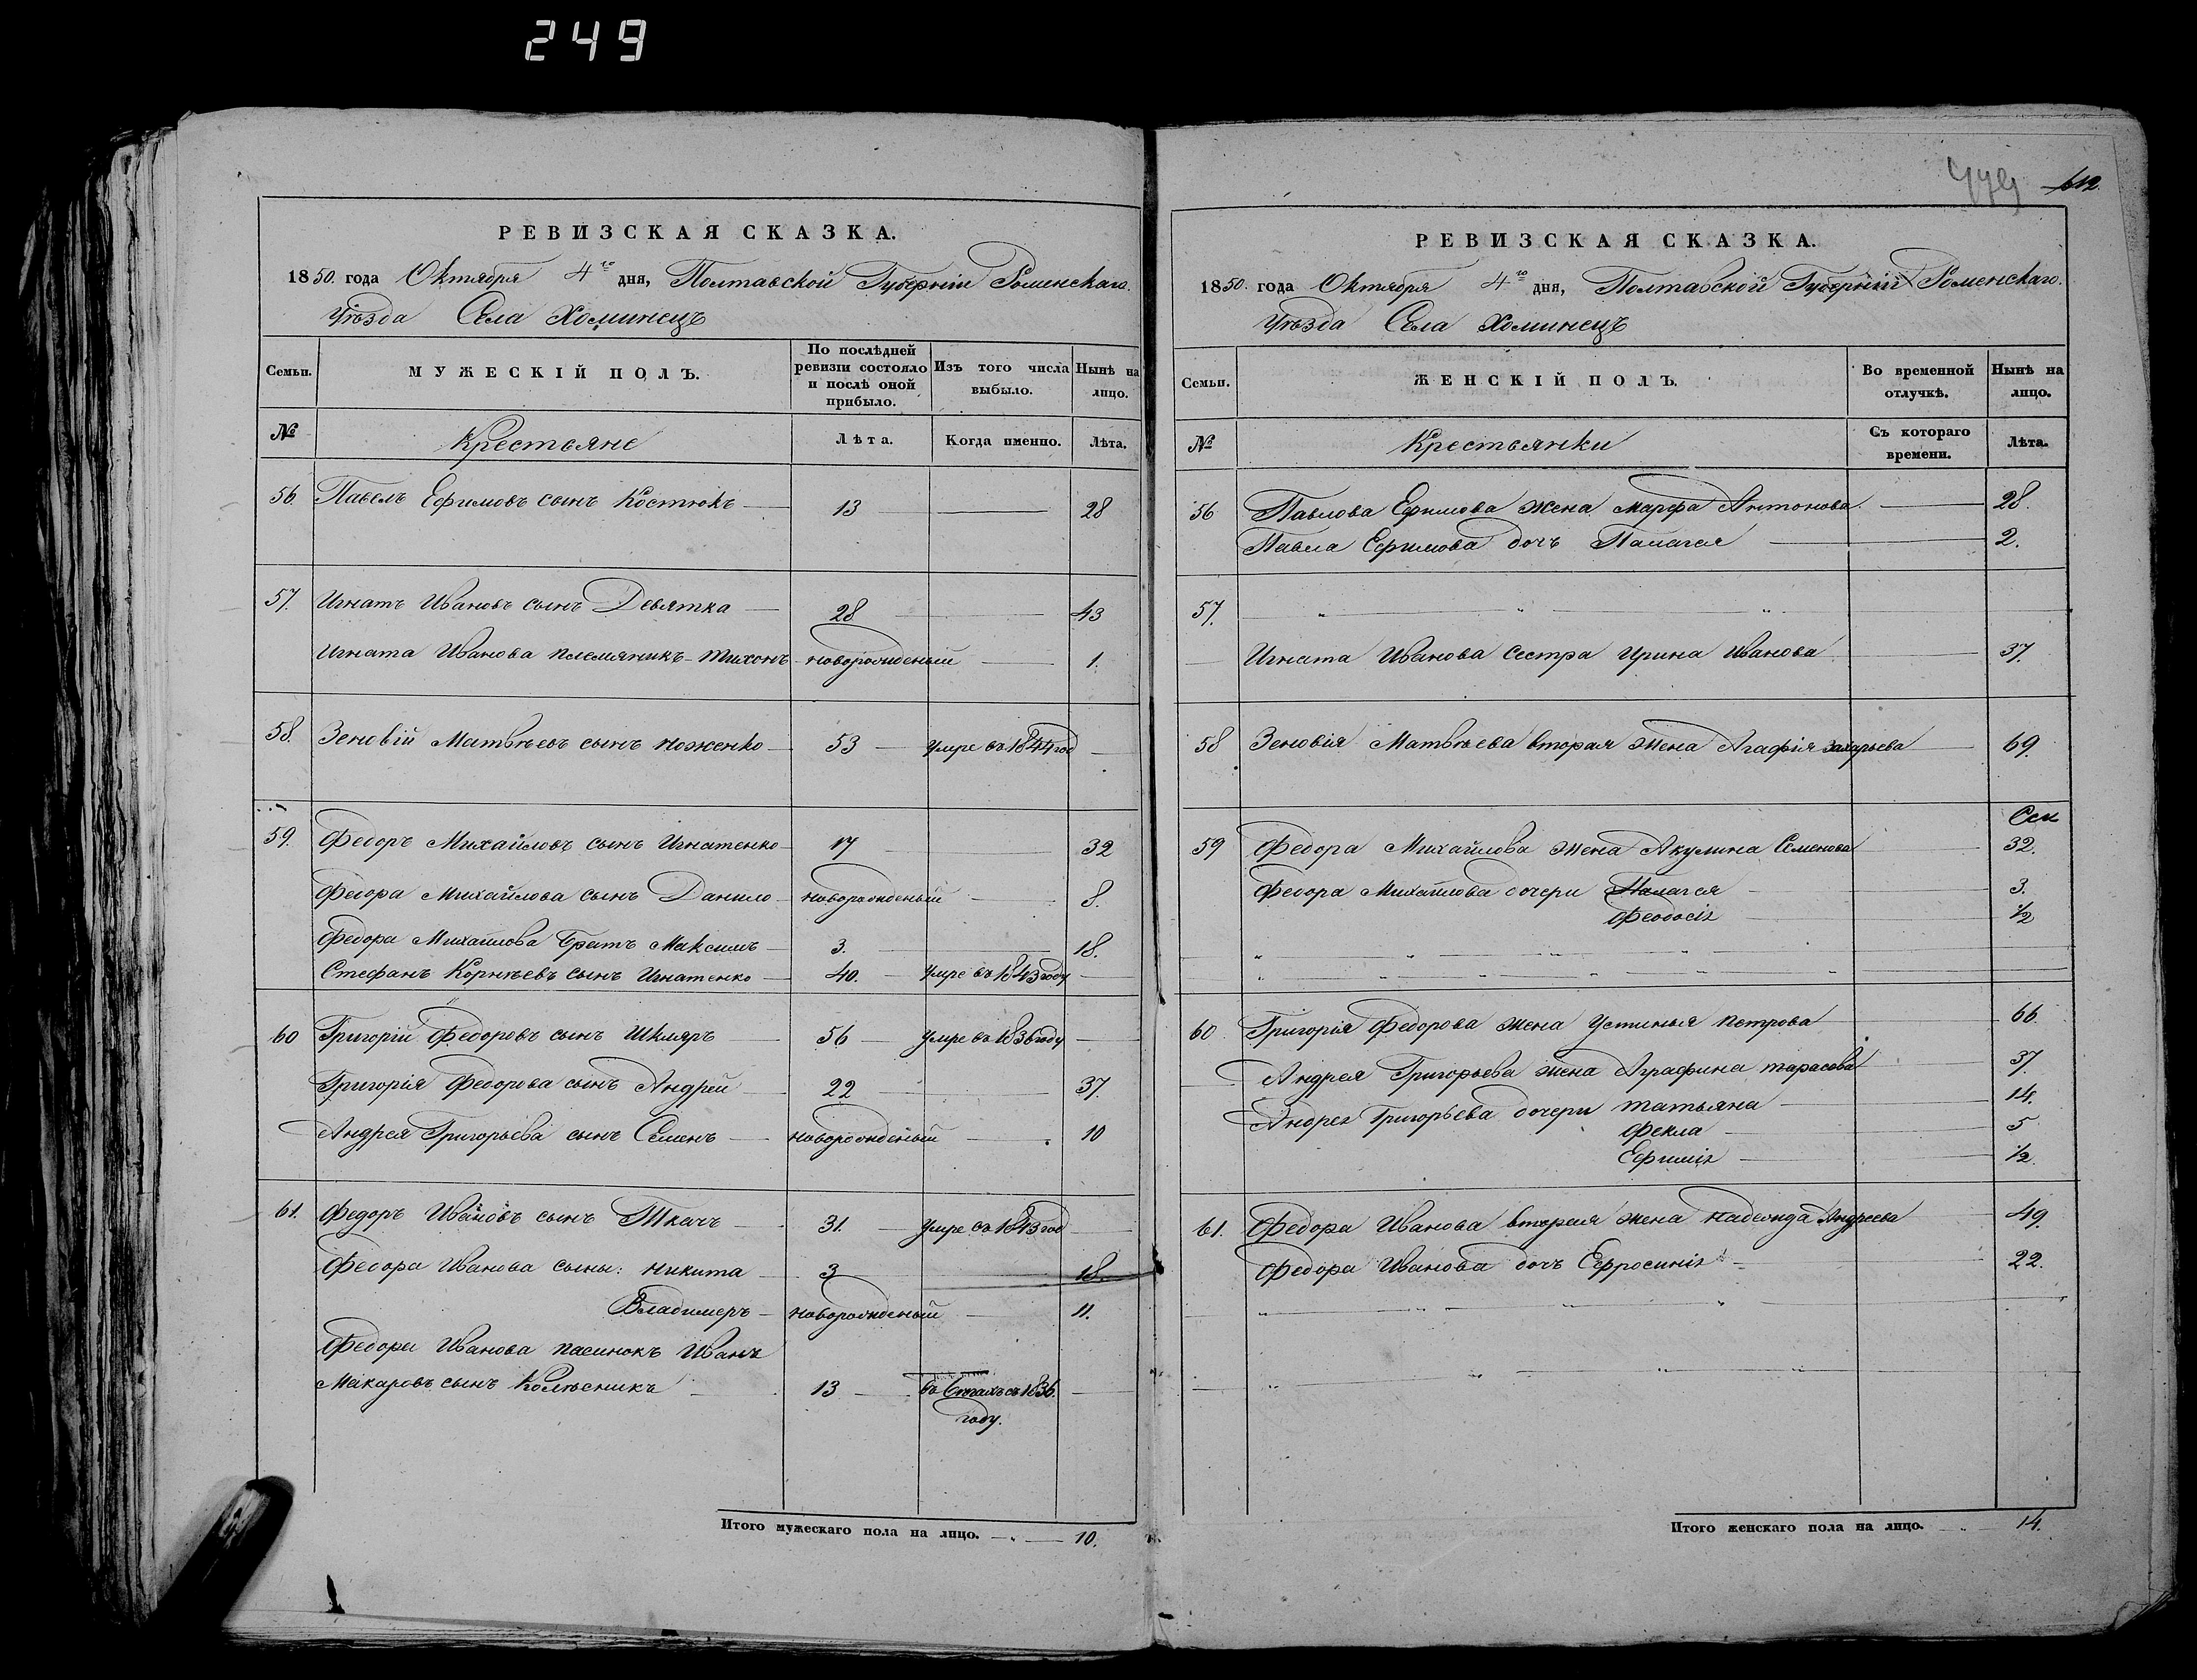 249
612.
РЕВИЗСКАЯ СКАЗКА.
1850. года Октября 4го дня, Полтавской Губерніи Роменскаго
Уѣзда Села Хоминецъ
Семьи.
МУЖЕСКІЙ ПОЛЪ.
По послѣдней ревизіи состояло и послѣ оной прибыло.
Изъ того числа выбыло.
Нынѣ на лицо.
№
Крестьяне
Лѣта.
Когда именно.
Лѣта.
56. Павелъ Ефимовъ сынъ Костюкъ — 13 — 28
57. Игнатъ Ивановъ сынъ Девятка — 28 — 43
Игната Иванова племяникъ - Тихонъ - новорожденый — 1.
58. Зеновій Матвѣевъ сынъ Ноженко — 53 — умре въ 1844 год —
59. Федоръ Михайловъ сынъ Игнатенко — 17 — 32
Федора Михайлова сынъ Данило — новорожденый — 8.
Федора Михайлова братъ Максимъ — 3. — 18.
Стефанъ Корнѣевъ сынъ Игнатенко — 40. — умре въ 1843 году —
60 Григорій Федоровъ сынъ Шкляръ — 56 — умре въ 1836 году —
Григорія Федорова сынъ Андрей — 22 — 37.
Андрея Григорьева сынъ Семенъ — новорожденый — 10
61. Федоръ Ивановъ сынъ Ткачъ — 31. — умре въ 1843 год —
Федора Иванова сыны: Никита — 3 — 18.
Владимеръ — новорожденый — 11.
Федора Иванова пасинокъ Иванъ
Макаровъ сынъ Колѣсникъ — 13 — въ бѣгахъ съ 1836.
году.
Итого мужескаго пола на лицо. — „ — 10.
РЕВИЗСКАЯ СКАЗКА.
1850. года Октября 4го дня, Полтавской Губерніи Роменскаго.
Уѣзда Села Хоминецъ
Семьи.
ЖЕНСКІЙ ПОЛЪ.
Во временной отлучкѣ.
Нынѣ на лицо.
№
Крестьянки
Съ котораго времени.
Лѣта.
56 Павлова Ефимова жена Марфа Антонова. — 28.
Павла Ефимова дочь Палагея — 2.
57. „ — „ — „
Игната Иванова сестра Ирина Иванова — 37.
58 Зеновія Матвѣева вторая жена Агафія Захарьева — 69.
59 Федора Михайлова жена Акулина Семенова — 32.
Федора Михайлова дочери Палагея — 3.
Феодосія — 1/2
„ — „ — „
„ — „ — „
60. Григорія Федорова жена Устинья Петрова — 66.
Андрея Григорьева жена Аграфина Тарасова — 37.
Андрея Григорьева дочери Татьяна — 14.
Фекла — 5
Ефимія — 1/2
61. Федора Иванова вторая жена Надежда Андреева — 49.
Федора Иванова дочь Ефросинія — 22.
„ — „ — „
„ — „ — „
Итого женскаго пола на лицо. — „ — 14.